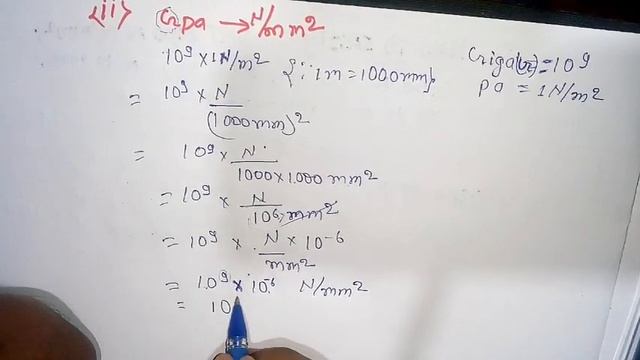 (ii) Gpa → N/mm²
10⁹ × 1N/m² {∵ 1m = 1000mm}
Giga(G) = 10⁹
pa = 1N/m²
= 10⁹ × N
(1000mm)²
= 10⁹ × N
1000×1000 mm²
= 10⁹ × N
10⁶ mm²
= 10⁹ × N × 10⁻⁶
mm²
= 10⁹ × 10⁻⁶ N/mm²
= 10